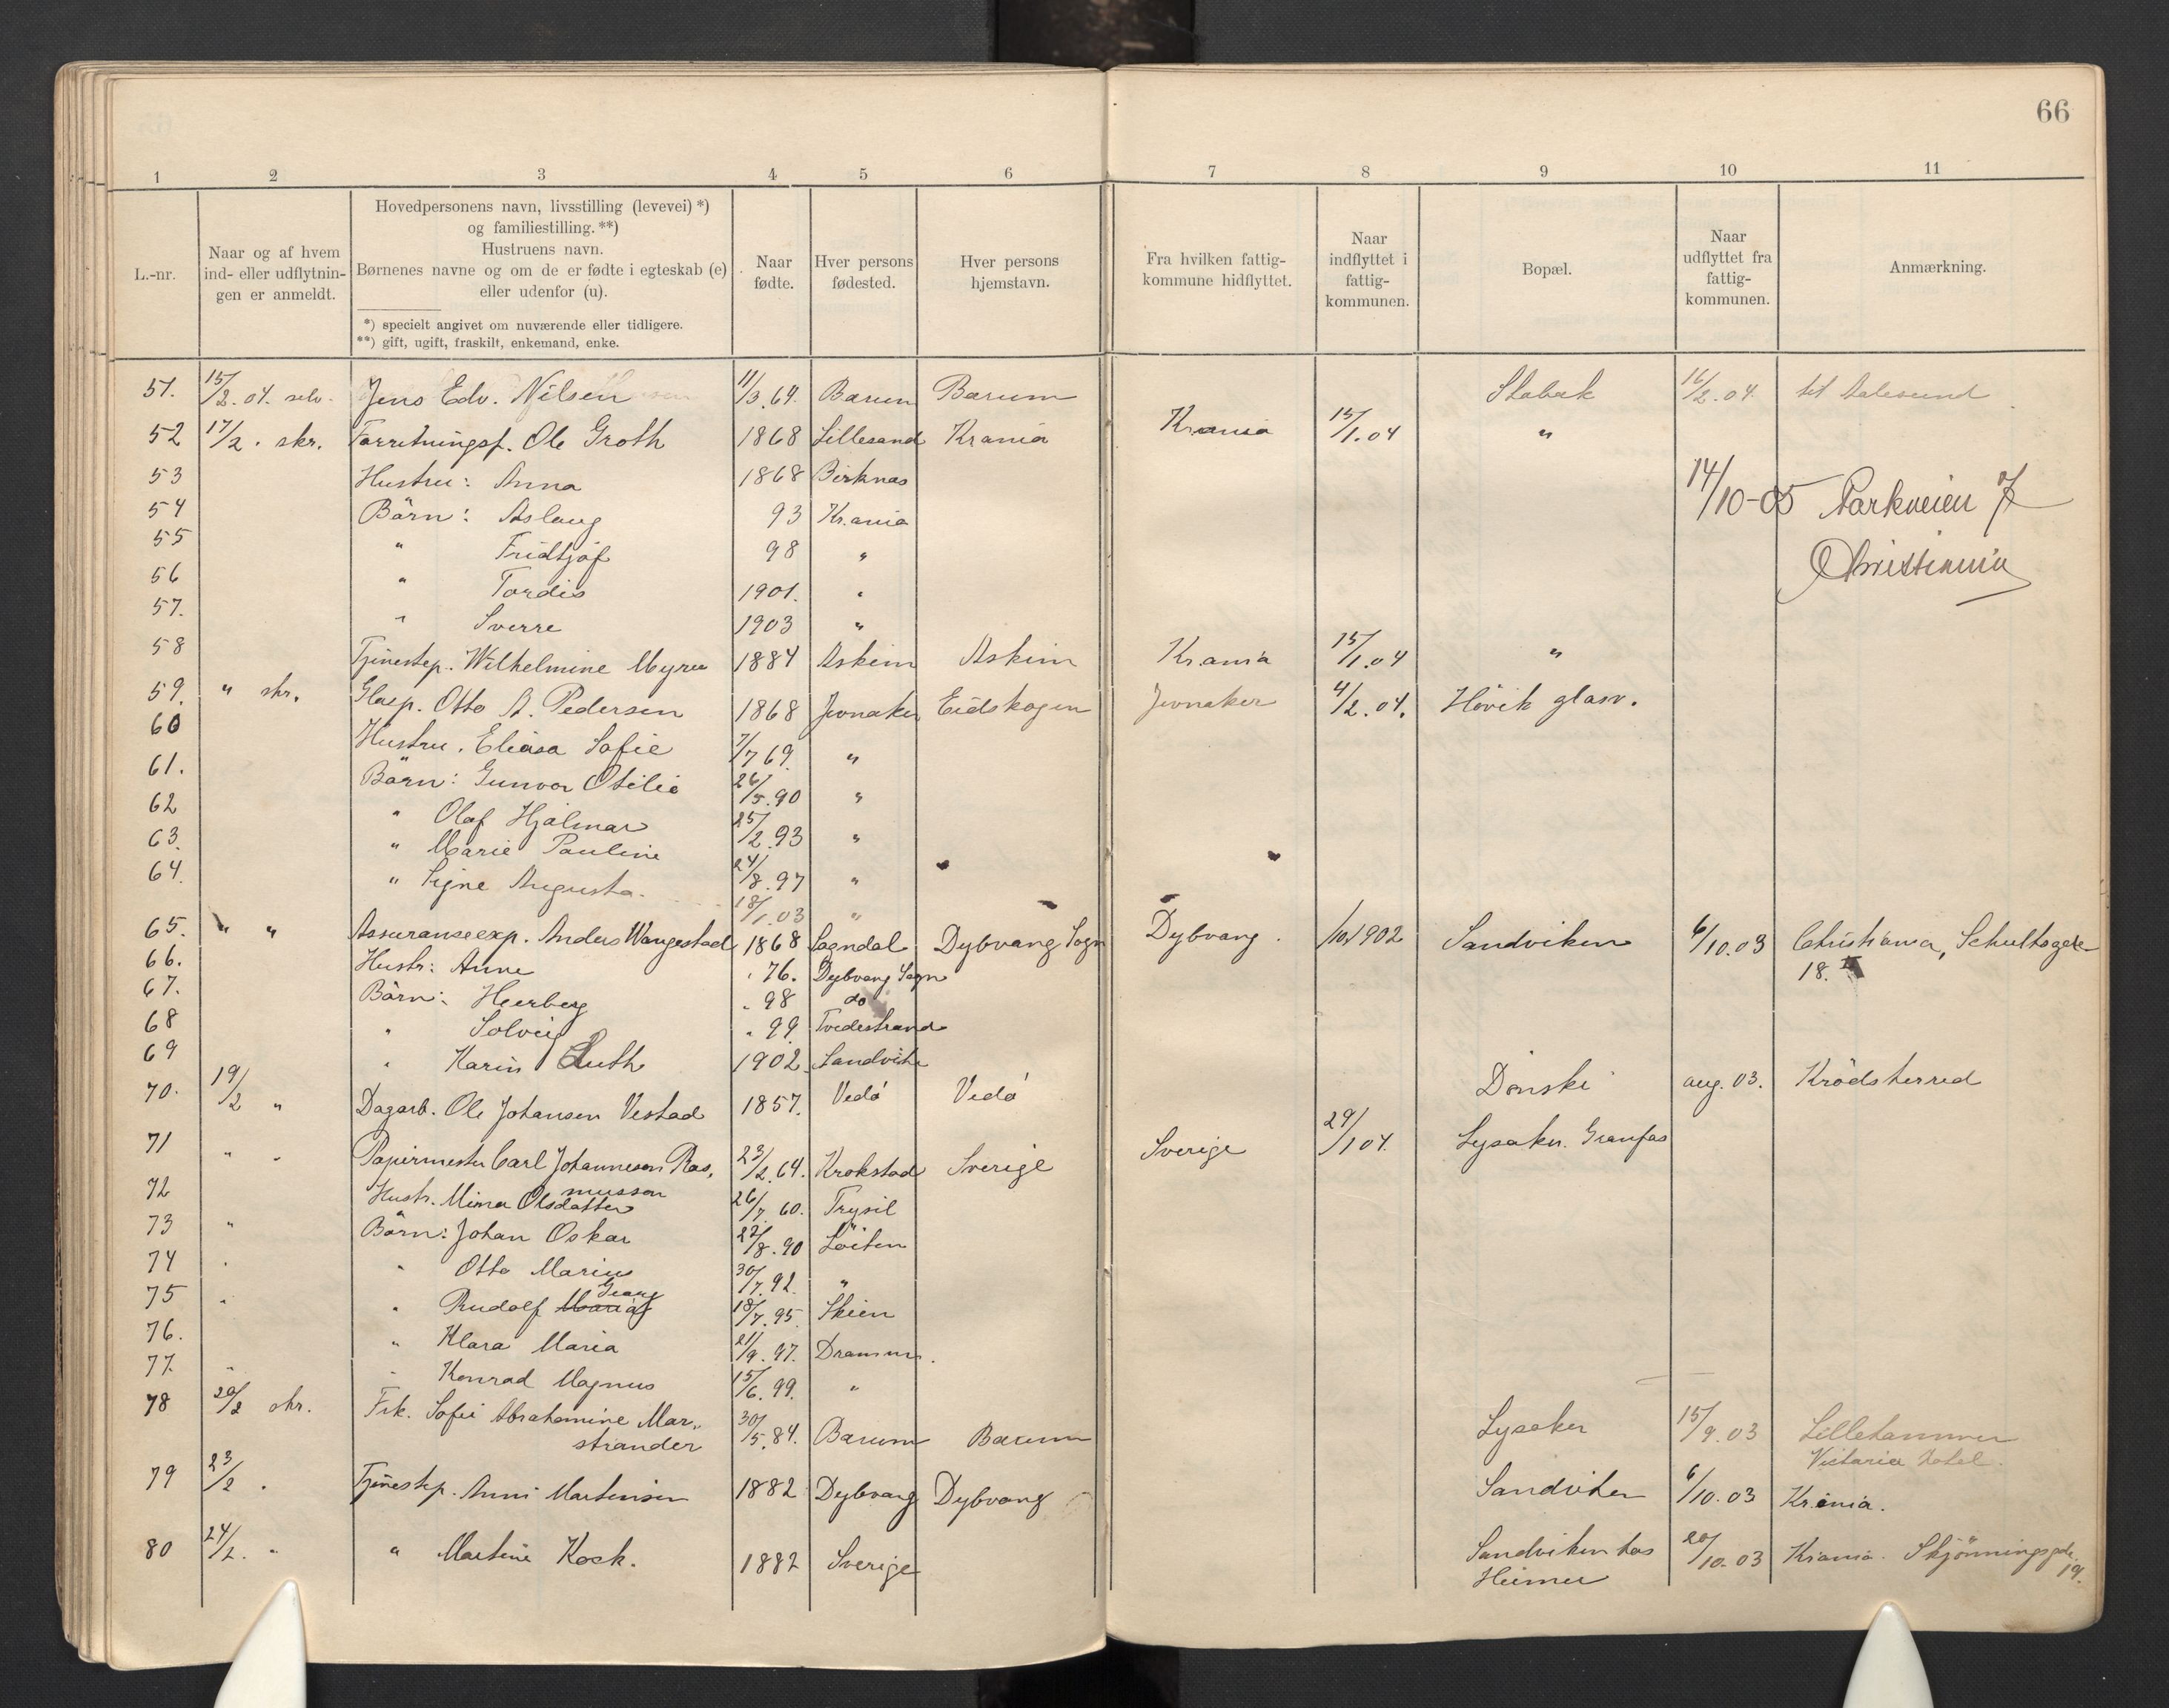 66
1 2 3 4 5 6 7 8 9 10 11
L.-nr.
Naar og af hvem
ind- eller udflytnin-
gen er anmeldt.
Hovedpersonens navn, livsstilling (levevei) *)
og familiestilling. **)
Hustruens navn.
Børnenes navne og om de er fødte i egteskab (e)
eller udenfor (u).
*) specielt angivet om nuværende eller tidligere.
**) gift, ugift, fraskilt, enkemand, enke.
Naar
fødte.
Hver persons
fødested.
Hver persons
hjemstavn.
Fra hvilken fattig-
kommune hidflyttet.
Naar
indflyttet i
fattig-
kommunen.
Bopæl.
Naar
udflyttet fra
fattig-
kommunen.
Anmærkning.
51. 15/2.04. selv. Jens Edv. Nilsen 11/3.64. Bærum Bærum Stabæk 16/2.04. til Aalesund
52 17/2. skr. Forretningsf. Ole Groth 1868 Lillesand Kr.ania Kr.ania 15/1.04 "
53 Hustru: Anna 1868 Birknæs
14/10-05 Parkveien 7
Christiania
54 Börn: Aslaug 93 Kr.ania
55 " Fridtjof 98 "
56 " Tordis 1901. "
57. " Sverre 1903 "
58 Tjenestep. Wilhelmine Myren 1884 Askim Askim Kr.ania 15/1.04 "
59. " skr. Glasp. Otto A. Pedersen 1868 Jevnaker Eidskogen Jevnaker 4/2.04. Hövik glasv.
60 Hustru. Eliasa Sofie 7/7 69. "
61. Börn: Gunvor Otilie 26/5.90 "
62 " Olaf Hjalmar 25/2.93 "
63. " Marie Pauline 24/8.97 "
64. " Signe Augusta 18/1.03 "
65. " " Assuranseexp. Anders Wangestad 1868 Sogndal Dybvang Sogn Dybvang. /10 1902 Sandviken 6/10.03 Christiania, Schultzgate
18.
66. Hustr: Anne " 76. Dybvang Sogn
67. Börn: Herberg " 98 do
68 " Solveig " 99. Tvedestrand
69 " Karin Ruth 1902 Sandvike
70. 19/2 " Dagarb. Ole Johansen Vestad 1857. Vedö Vedö Dönski aug. 03. Krödsherred
71 " " Papirmester Carl Johannesen Ras-
mussen 23/2.64. Krokstad Sverige Sverige 29/1 04. Lysaker. Granfos
72 Hustr. Mina Olsdatter 26/7.60. Trysil
73 " Börn: Johan Oskar 22/8.90 Löiten
74 " " Otto Marius 30/7.92. "
75 " " Rudolf Georg 18/7.95. Skien
76. " Klara Maria 21/9.97. Drammen.
77. " " Konrad Magnus 15/6.99. "
78 20/2 skr. Frk. Sofie Abrahamine Mar-
strander 30/5.84. Bærum Bærum Lysaker 15/9.03 Lillehammer
Victoria hotel.
79 23/2 " Tjenestep. Anni Martinsen 1882 Dybvang Dybvang Sandviken 6/10.03 Kr.ania.
80 24/2. " " Martine Kock. 1882 Sverige Sandviken hos
Heimer 20/10.03 Kr.ania. Skjönningsgde.
19.